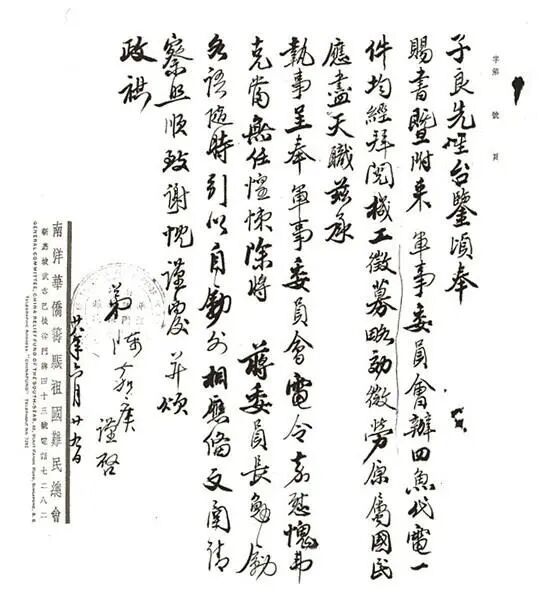 字第 號 頁
子良先生台鑒頃奉
賜書暨附來 軍事委員會辦四魚代電一
件均經拜閱機工徵募略効微勞原屬國民
應盡天職茲承
執事呈奉 軍事委員會電令嘉慰愧弗
克當無任惶悚除將 蔣委員長勉勵
各語隨時引以自勵外相應備文請
察照順致謝忱謹覆并頌
政祺
弟陳嘉庚謹啓
廿八年六月廿九日
南洋華僑籌賑祖國難民總會
新嘉坡武吉巴梭律門牌四十三號電話七二八二
GENERAL COMMITTEE, CHINA RELIEF FUND OF THE SOUTH-SEAS, 43, BUKIT PASOH ROAD, SINGAPORE, S. S.
TELEGRAPHIC ADDRESS: "CHINAFUND" TELEPHONE No. 7282